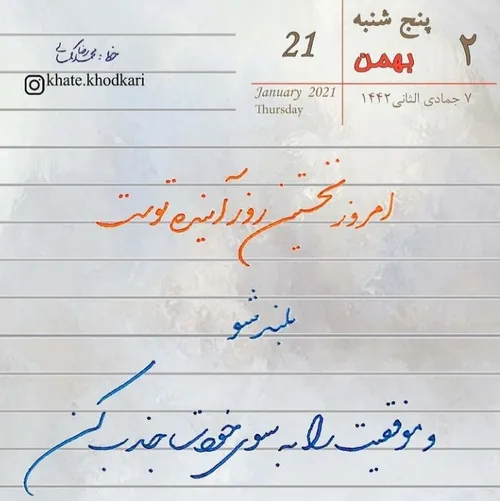 پنج شنبه
۲ بهمن
21
January 2021
Thursday
۷ جمادی الثانی ۱۴۴۲
خط: محمدرضا
khate.khodkari
امروز نخستین روز آینده توست
بلند شو
و موفقیت را به سوی خودت جذب کن